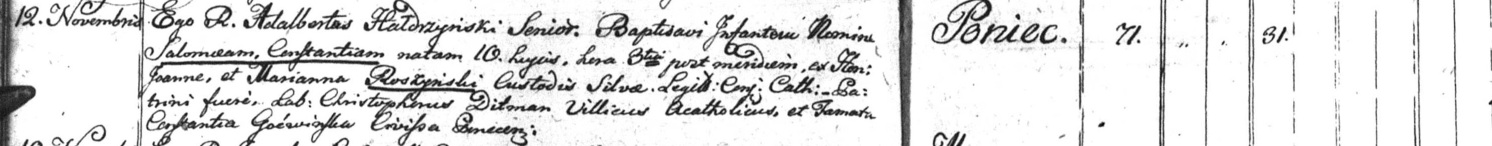 12. Novembris Ego R. Adalbertus Hałdrzyński Senior. Baptisavi Infantem Nomine Poniec. 71. " " 31.
Salomeam, Constantiam natam 10. hujus, hora 3tia post meridiem, ex Hon:
Joanne, et Marianna Roszyński Custodis Silvæ. Legit: Conj: Cath:- Pa:
trini fuere. Lab: Christopherus Ditman Villicus Acatholicus, et Famata
Constantia Civissa Ponecen: